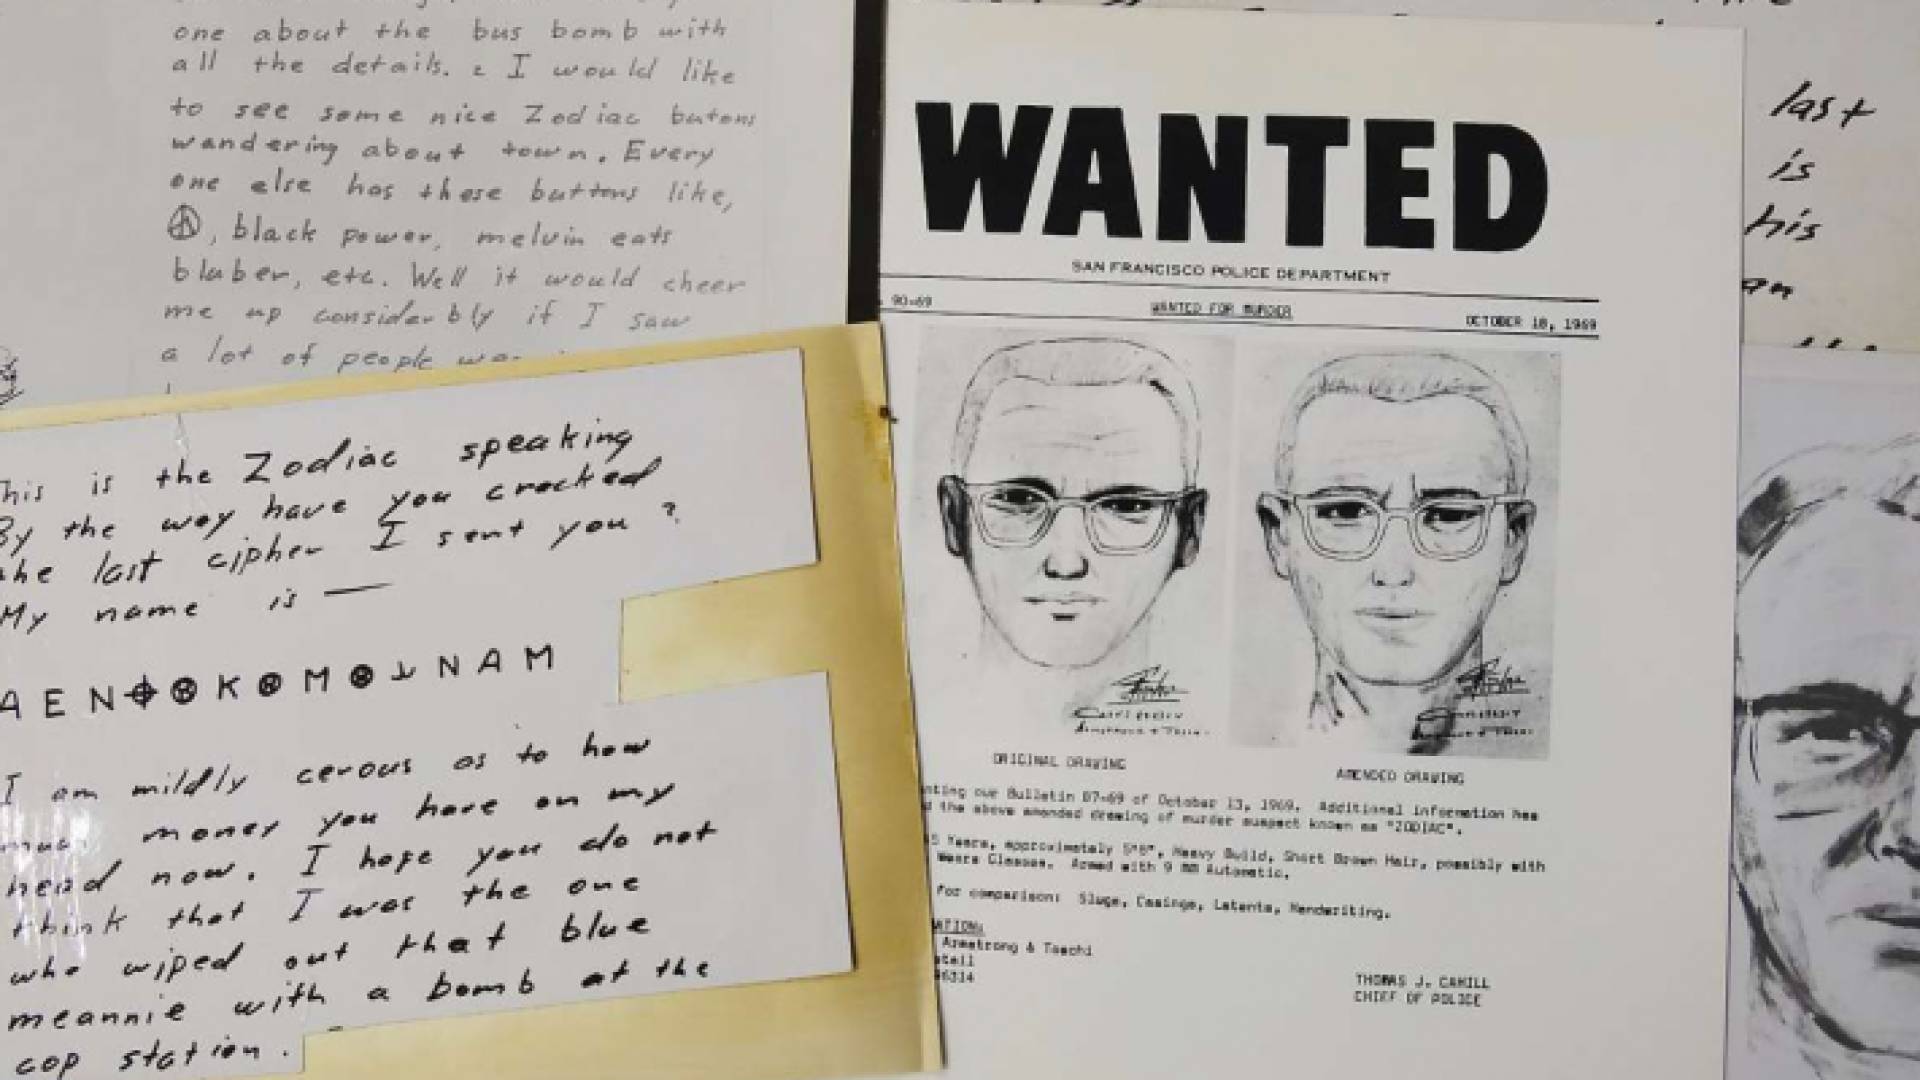 one about the bus bomb with
all the details. I would like
to see some nice Zodiac butons
wandering about town. Every
one else has these buttons like,
black power, melvin eats
bluber, etc. Well it would cheer
me up considerbly if I saw
a lot of people
This is the Zodiac speaking
By the way have you cracked
the last cipher I sent you ?
My name is —
A E N ⌖ ⊗ K ⊗ M ⊗ ⅃ N A M
I am mildly cerous as to how
much money you have on my
head now. I hope you do not
think that I was the one
who wiped out that blue
meannie with a bomb at the
cop station.
WANTED
SAN FRANCISCO POLICE DEPARTMENT
90-69 WANTED FOR MURDER OCTOBER 18, 1969
ORIGINAL DRAWING AMENDED DRAWING
nting our Bulletin 87-69 of October 13, 1969. Additional information has
the above amended drawing of murder suspect known as "ZODIAC".
5 Years, approximately 5'8", Heavy Build, Short Brown Hair, possibly with
Wears Glasses. Armed with 9 mm Automatic.
for comparison: Slugs, Casings, Latents, Handwriting.
ATION:
Armstrong & Toschi
etail
6314
THOMAS J. CAHILL
CHIEF OF POLICE
last
is
his
an